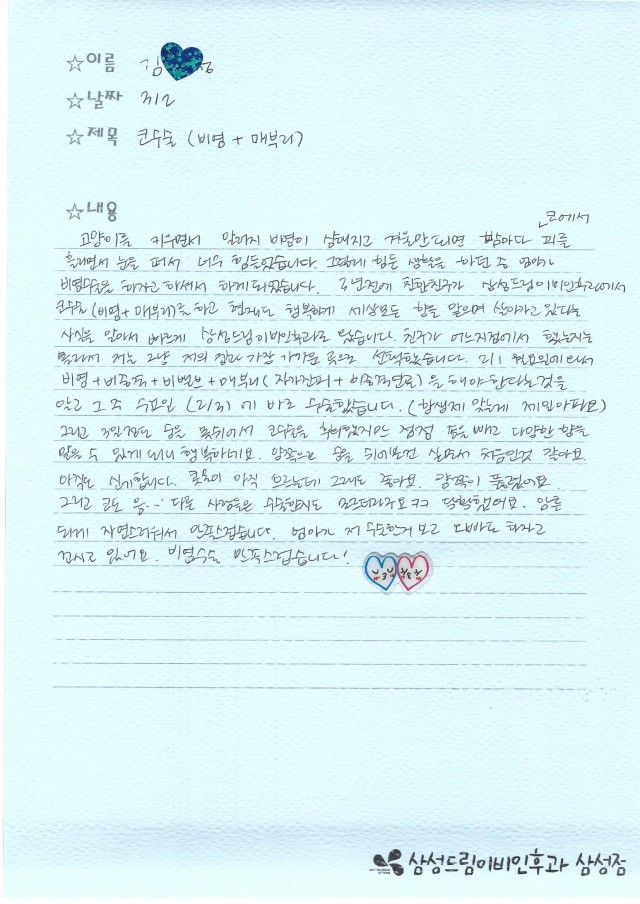 ☆이름 김
☆날짜 3/2
☆제목 코수술 (비염 + 매부리)
☆내용
코에서
고양이를 키우면서 알러지 비염이 심해지고 겨울만되면 밤마다 피를
흘리면서 눈을 떠서 너무 힘들었습니다. 그렇게 힘든 생활을 하던 중 엄마가
비염수술을 하자고 하셔서 하게되었습니다. 전에 친한친구가 삼성드림이비인후과에서
코수술 (비염+매부리)를 하고 현재도 행복하게 세상모든 향을 맡으며 살아가고 있다는
사실을 알아서 바로 삼성드림이비인후과로 왔습니다. 친구가 어느지점에서 했는지는
몰라서 저는 그냥 저의 집과 가장 가까운 곳으로 선택했습니다. 2/1 월요일에
비염+비중격+비밸브+매부리(자가진피+비중격연골)을 해야한다는것을
알고 그 주 수요일 (2/3)에 바로 수술했습니다. (항생제 맞는게 제일아파요)
그리고 3일정도 숨을 못쉬어서 코수술을 후회했지만 점점 솜을 빼고 다양한 향을
맡을 수 있게 되니 행복하네요. 양쪽으로 숨을 쉬어본건 살면서 처음인것 같아요.
아직도 신기합니다. 콧물이 아직 흐르는데 그래도 좋아요. 양쪽이 뚫렸어요.
그리고 코도 음.. 다들 사람들은 수술한지도 모르더라구요ㅋㅋ 당황했어요. 암튼
되게 자연스러워서 만족스럽습니다. 엄마가 저 수술한거 보고 오빠도 하자고
꼬시고 있어요. 비염수술 만족스럽습니다!
삼성드림이비인후과 삼성점